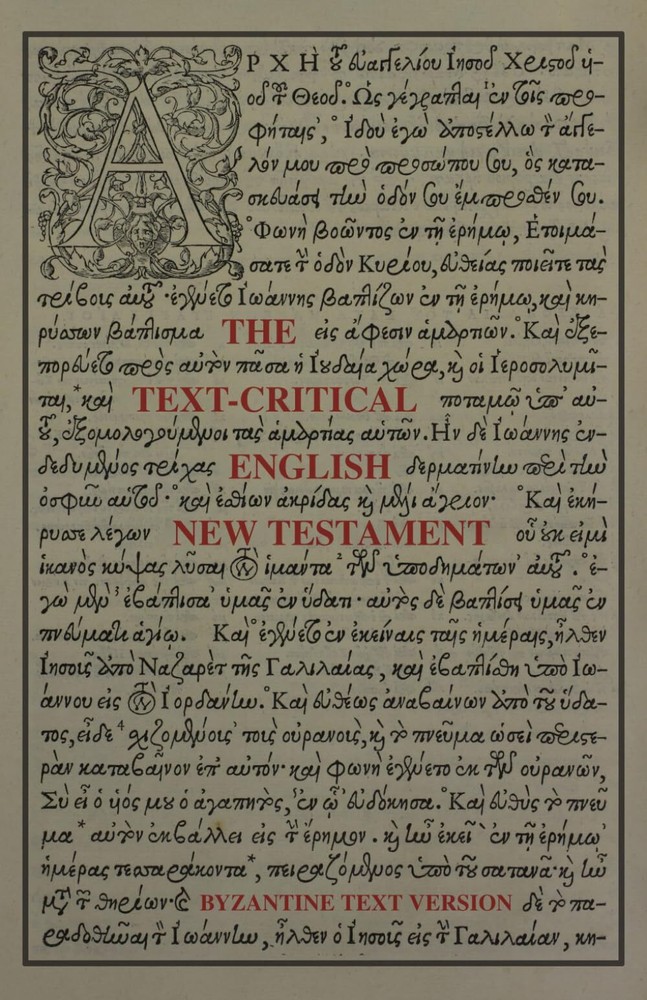 ΑΡΧΗ τοῦ εὐαγγελίου Ἰησοῦ Χριστοῦ ὑι-
οῦ τοῦ Θεοῦ. Ὡς γέγραπται ἐν τοῖς προ-
φήταις, Ἰδοὺ ἐγὼ ἀποστέλλω τὸν ἄγγε-
λόν μου πρὸ προσώπου σου, ὃς κατα-
σκευάσει τὴν ὁδόν σου ἔμπροσθέν σου.
Φωνὴ βοῶντος ἐν τῇ ἐρήμῳ, Ἑτοιμά-
σατε τὴν ὁδὸν Κυρίου, εὐθείας ποιεῖτε τὰς
τρίβους αὐτοῦ. ἐγένετο Ἰωάννης βαπτίζων ἐν τῇ ἐρήμῳ, καὶ κη-
ρύσσων βάπτισμα THE εἰς ἄφεσιν ἁμαρτιῶν. Καὶ ἐξε-
πορεύετο πρὸς αὐτὸν πᾶσα ἡ Ἰουδαία χώρα, καὶ οἱ Ἱεροσολυμῖ-
ται, καὶ TEXT-CRITICAL ποταμῷ ὑπ' αὐ-
τοῦ, ἐξομολογούμενοι τὰς ἁμαρτίας αὐτῶν. Ἦν δὲ Ἰωάννης ἐν-
δεδυμένος τρίχας ENGLISH δερματίνην περὶ τὴν
ὀσφὺν αὐτοῦ· καὶ ἐσθίων ἀκρίδας καὶ μέλι ἄγριον· Καὶ ἐκή-
ρυσσε λέγων NEW TESTAMENT οὗ οὐκ εἰμὶ
ἱκανὸς κύψας λῦσαι τὸν ἱμάντα τῶν ὑποδημάτων αὐτοῦ. ἐ-
γὼ μὲν ἐβάπτισα ὑμᾶς ἐν ὕδατι· αὐτὸς δὲ βαπτίσει ὑμᾶς ἐν
πνεύματι ἁγίῳ. Καὶ ἐγένετο ἐν ἐκείναις ταῖς ἡμέραις, ἦλθεν
Ἰησοῦς ἀπὸ Ναζαρὲτ τῆς Γαλιλαίας, καὶ ἐβαπτίσθη ὑπὸ Ἰω-
άννου εἰς τὸν Ἰορδάνην. Καὶ εὐθέως ἀναβαίνων ἀπὸ τοῦ ὕδα-
τος, εἶδε σχιζομένους τοὺς οὐρανοὺς, καὶ τὸ πνεῦμα ὡσεὶ περιστε-
ρὰν καταβαῖνον ἐπ' αὐτόν· καὶ φωνὴ ἐγένετο ἐκ τῶν οὐρανῶν,
Σὺ εἶ ὁ ὑιός μου ὁ ἀγαπητὸς, ἐν ᾧ εὐδόκησα. Καὶ εὐθὺς τὸ πνεῦ
μα αὐτὸν ἐκβάλλει εἰς τὴν ἔρημον. καὶ ἦν ἐκεῖ ἐν τῇ ἐρήμῳ
ἡμέρας τεσσαράκοντα, πειραζόμενος ὑπὸ τοῦ σατανᾶ· καὶ ἦν
μετὰ τῶν θηρίων· BYZANTINE TEXT VERSION δὲ τὸ πα-
ραδοθῆναι τὸν Ἰωάννην, ἦλθεν ὁ Ἰησοῦς εἰς τὴν Γαλιλαίαν, κη-